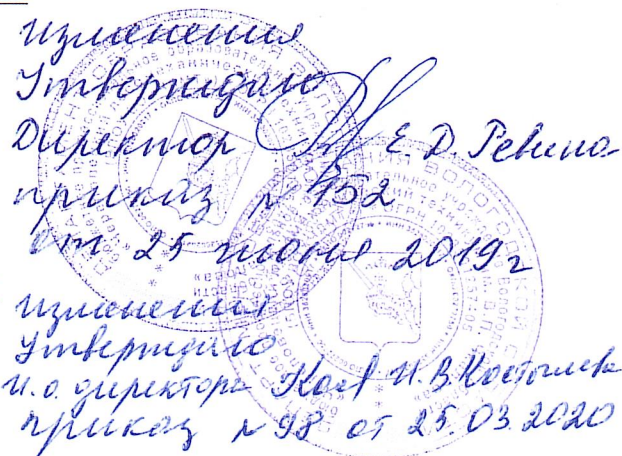 Изменения
Утверждаю
Директор Е. Д. Ревина
приказ № 152
от 25 июня 2019г
изменения
утверждаю
и.о. директора И. В. Костылева
приказ № 98 от 25.03.2020